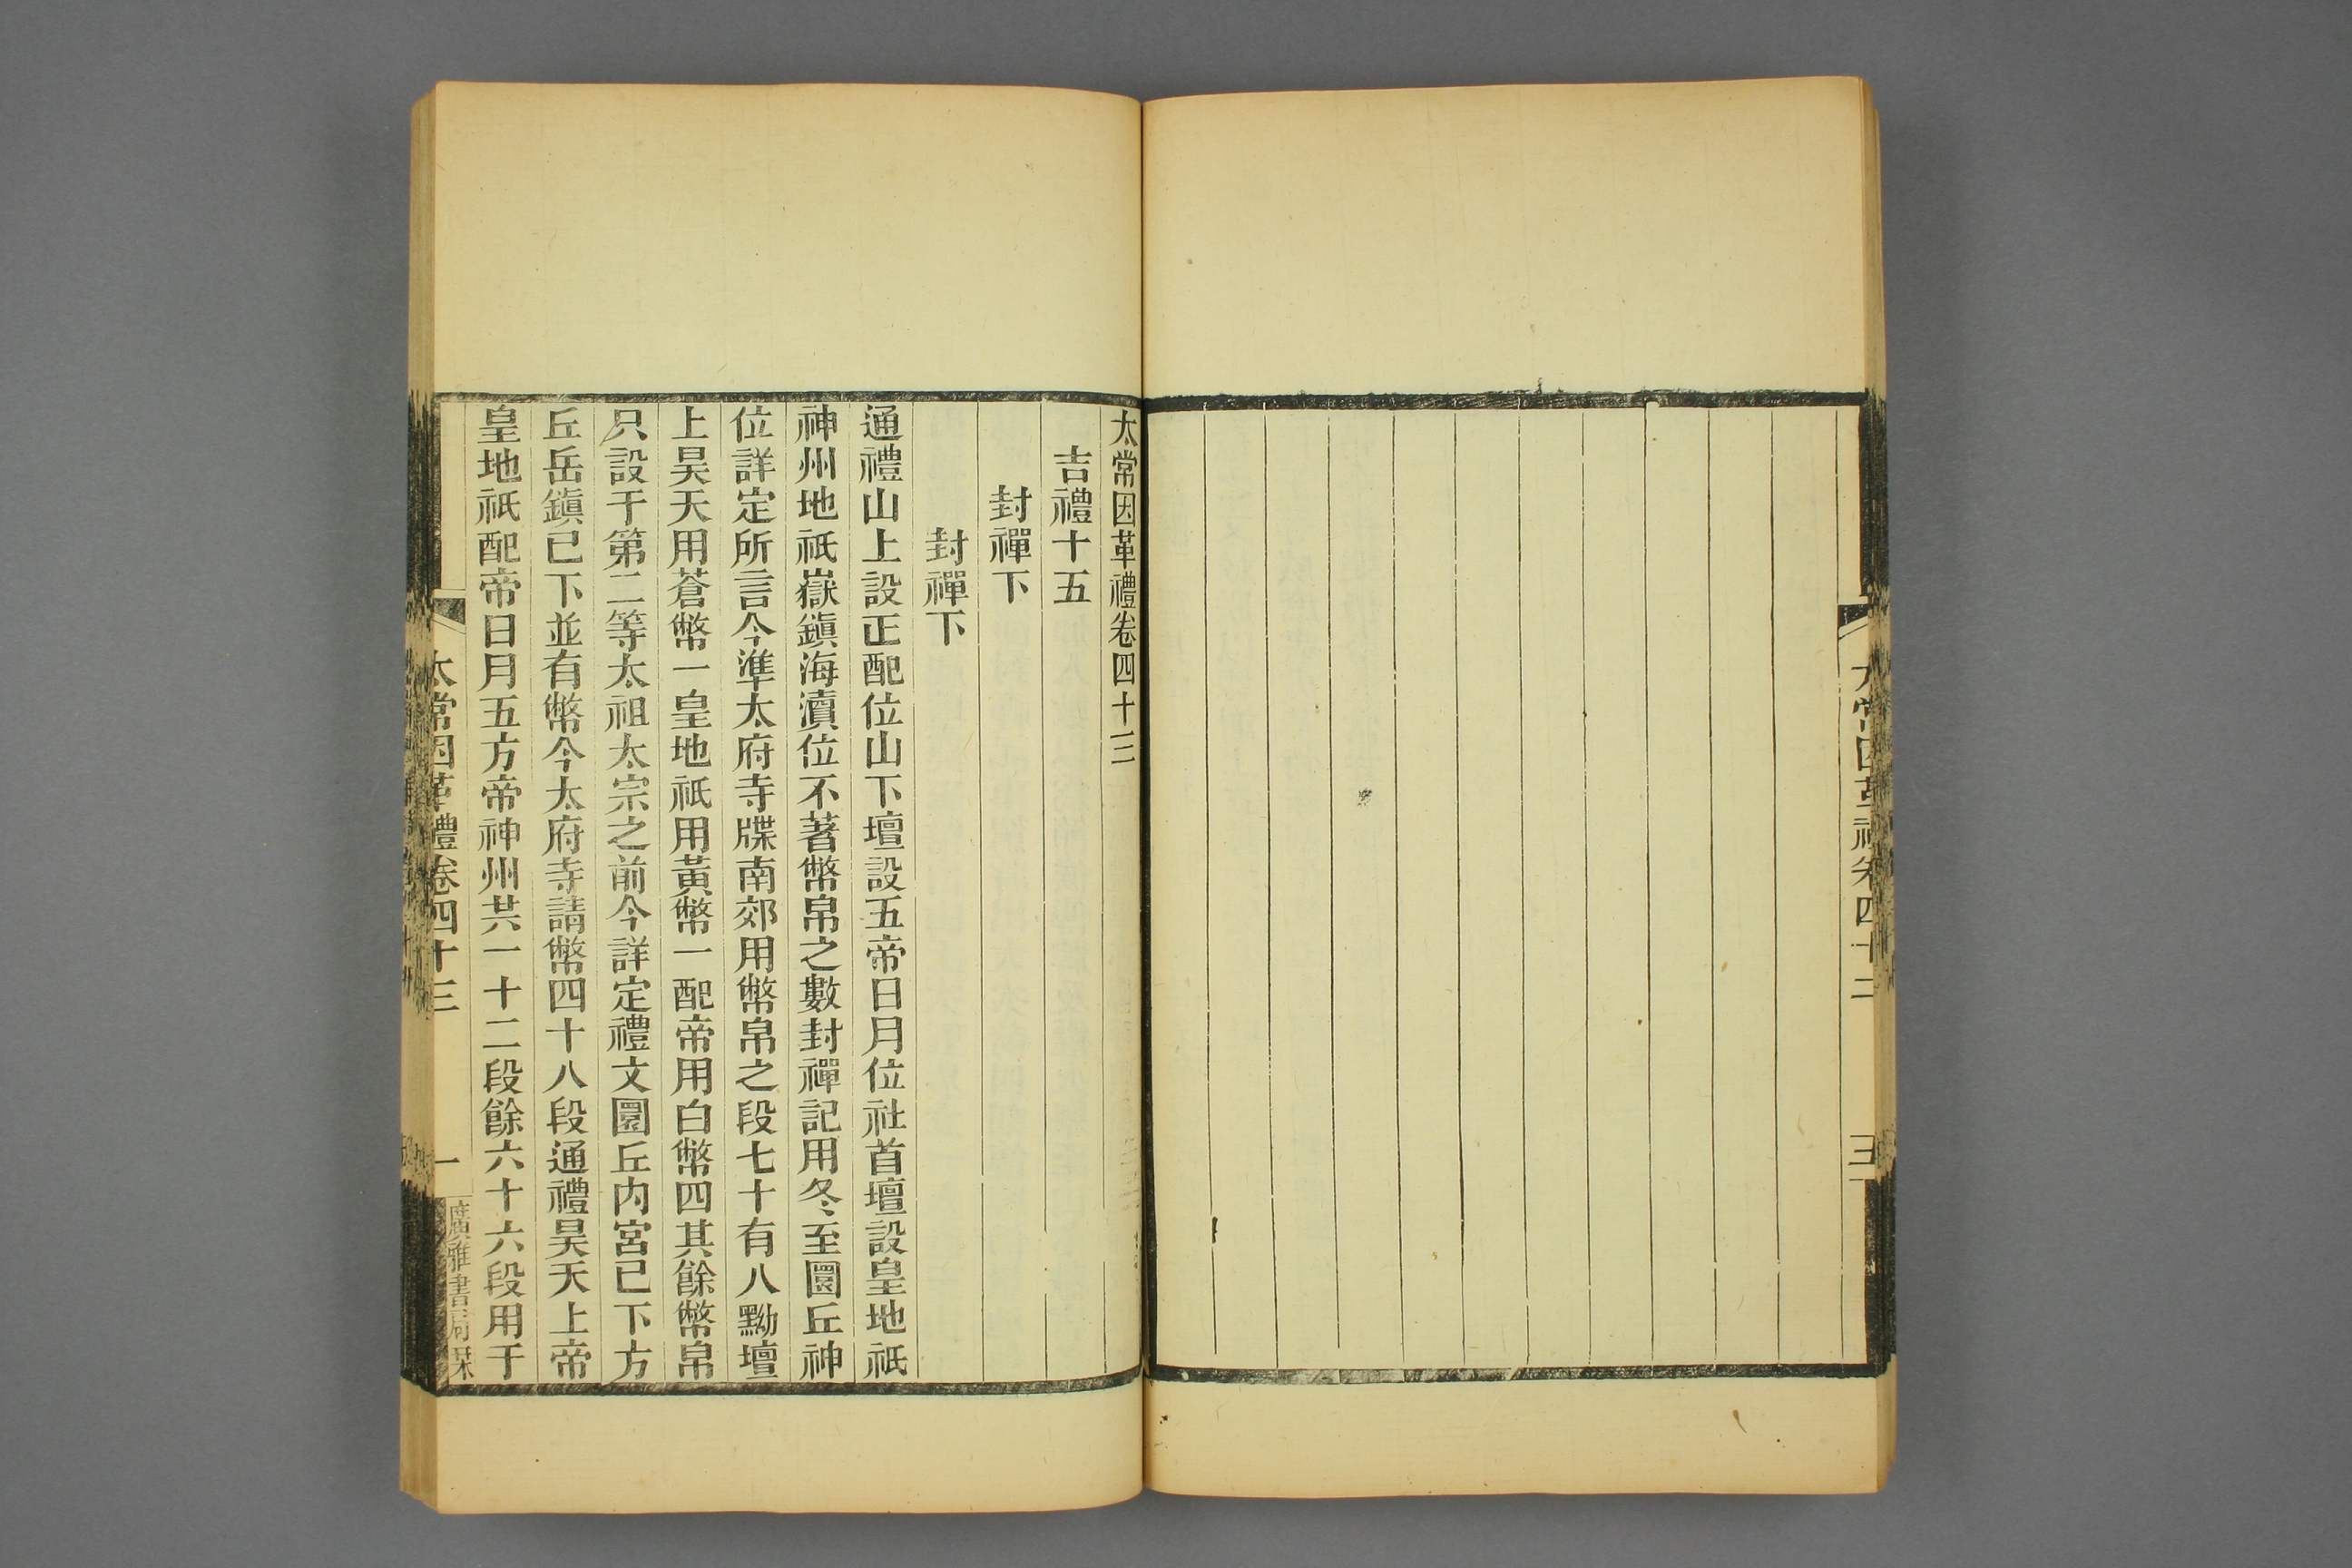 太常因革禮卷四十二
三
太常因革禮卷四十三
吉禮十五
封禪下
封禪下
通禮山上設正配位山下壇設五帝日月位社首壇設皇地祇
神州地祇嶽鎭海瀆位不著幣帛之數封禪記用冬至圜丘神
位詳定所言今準太府寺牒南郊用幣帛之段七十有八黝壇
上昊天用蒼幣一皇地祇用黃幣一配帝用白幣四其餘幣帛
只設于第二等太祖太宗之前今詳定禮文圜丘内宮已下方
丘岳鎭已下並有幣今太府寺請幣四十八段通禮昊天上帝
皇地祇配帝日月五方帝神州共一十二段餘六十六段用于
太常因革禮卷四十三
一
廣雅書局栞